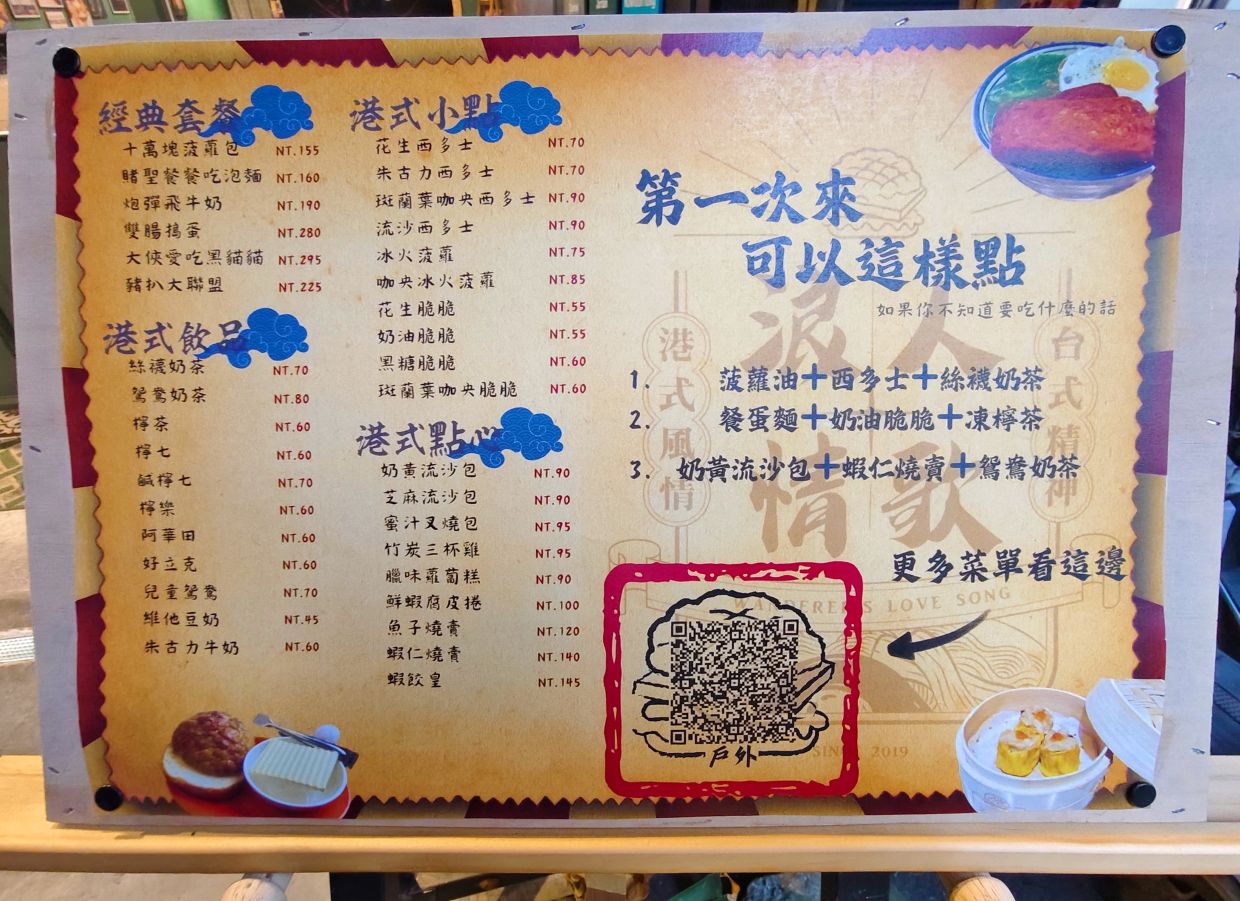 經典套餐
十萬塊菠蘿包 NT.155
賭聖餐餐吃泡麵 NT.160
炮彈飛牛奶 NT.190
雙腸搗蛋 NT.280
大俠愛吃黑貓貓 NT.295
豬扒大聯盟 NT.225
港式飲品
絲襪奶茶 NT.70
鴛鴦奶茶 NT.80
檸茶 NT.60
檸七 NT.60
鹹檸七 NT.70
檸樂 NT.60
阿華田 NT.60
好立克 NT.60
兒童鴛鴦 NT.70
維他豆奶 NT.45
朱古力牛奶 NT.60
港式小點
花生西多士 NT.70
朱古力西多士 NT.70
斑蘭葉咖央西多士 NT.90
流沙西多士 NT.90
冰火菠蘿 NT.75
咖央冰火菠蘿 NT.85
花生脆脆 NT.55
奶油脆脆 NT.55
黑糖脆脆 NT.60
斑蘭葉咖央脆脆 NT.60
港式點心
奶黃流沙包 NT.90
芝麻流沙包 NT.90
蜜汁叉燒包 NT.95
竹炭三杯雞 NT.95
臘味蘿蔔糕 NT.90
鮮蝦腐皮捲 NT.100
魚子燒賣 NT.120
蝦仁燒賣 NT.140
蝦餃皇 NT.145
第一次來
可以這樣點
如果你不知道要吃什麼的話
1. 菠蘿油+西多士+絲襪奶茶
2. 餐蛋麵+奶油脆脆+凍檸茶
3. 奶黃流沙包+蝦仁燒賣+鴛鴦奶茶
港式風情
浪人
情歌
台式精神
更多菜單看這邊
WANDERER'S LOVE SONG
戶外
SINCE 2019